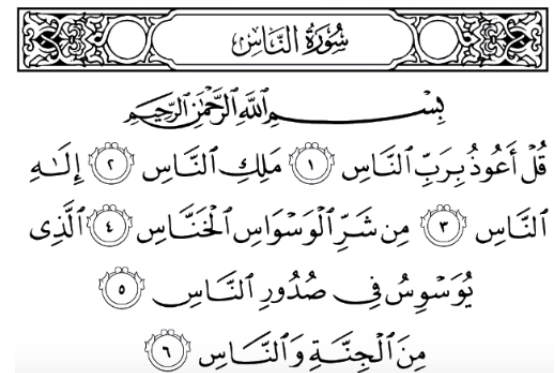 سُورَةُ النَّاسِ
بِسْمِ اللَّهِ الرَّحْمَٰنِ الرَّحِيمِ
قُلْ أَعُوذُ بِرَبِّ ٱلنَّاسِ ١ مَلِكِ ٱلنَّاسِ ٢ إِلَـٰهِ
ٱلنَّاسِ ٣ مِن شَرِّ ٱلْوَسْوَاسِ ٱلْخَنَّاسِ ٤ ٱلَّذِى
يُوَسْوِسُ فِى صُدُورِ ٱلنَّاسِ ٥
مِنَ ٱلْجِنَّةِ وَٱلنَّاسِ ٦